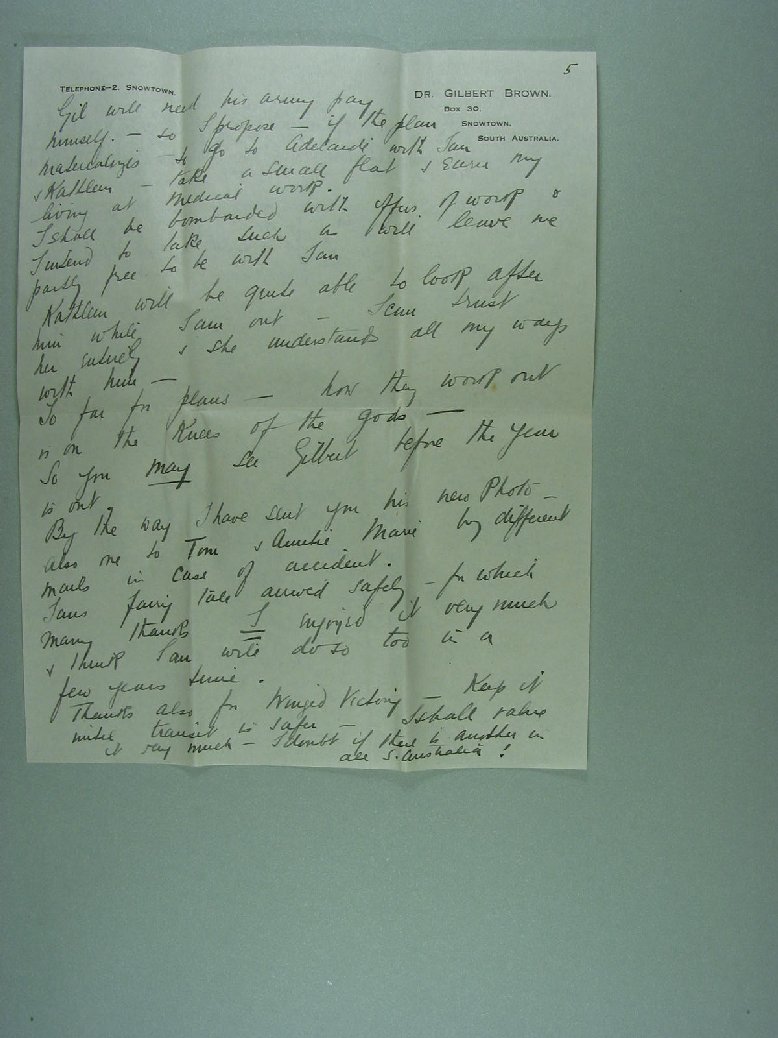 5
TELEPHONE-2. SNOWTOWN.
DR. GILBERT BROWN.
BOX 30.
SNOWTOWN.
SOUTH AUSTRALIA.
Gil will need his army pay
himself. — so I propose — if the plan
materializes to go to Adelaide with Ian
& Kathleen — take a small flat & earn my
living at medical work.
I shall be bombarded with offers of work &
I intend to take such as will leave me
partly free to be with Ian
Kathleen will be quite able to look after
him while I am out — I can trust
her entirely & she understands all my ways
with him —
So far for plans — how they work out
is on the Knees of the gods —
So you may see Gilbert before the year
is out.
By the way I have sent you his new Photo —
also one to Tom & Auntie Marie by different
mails in case of accident.
Ians fairy tale arrived safely — for which
many thanks I enjoyed it very much
& think Ian will do so too in a
few years time.
Thanks also for Winged Victory — Keep it
transit is safer — I shall value
it very much — I doubt if there is another in
all S. Australia!